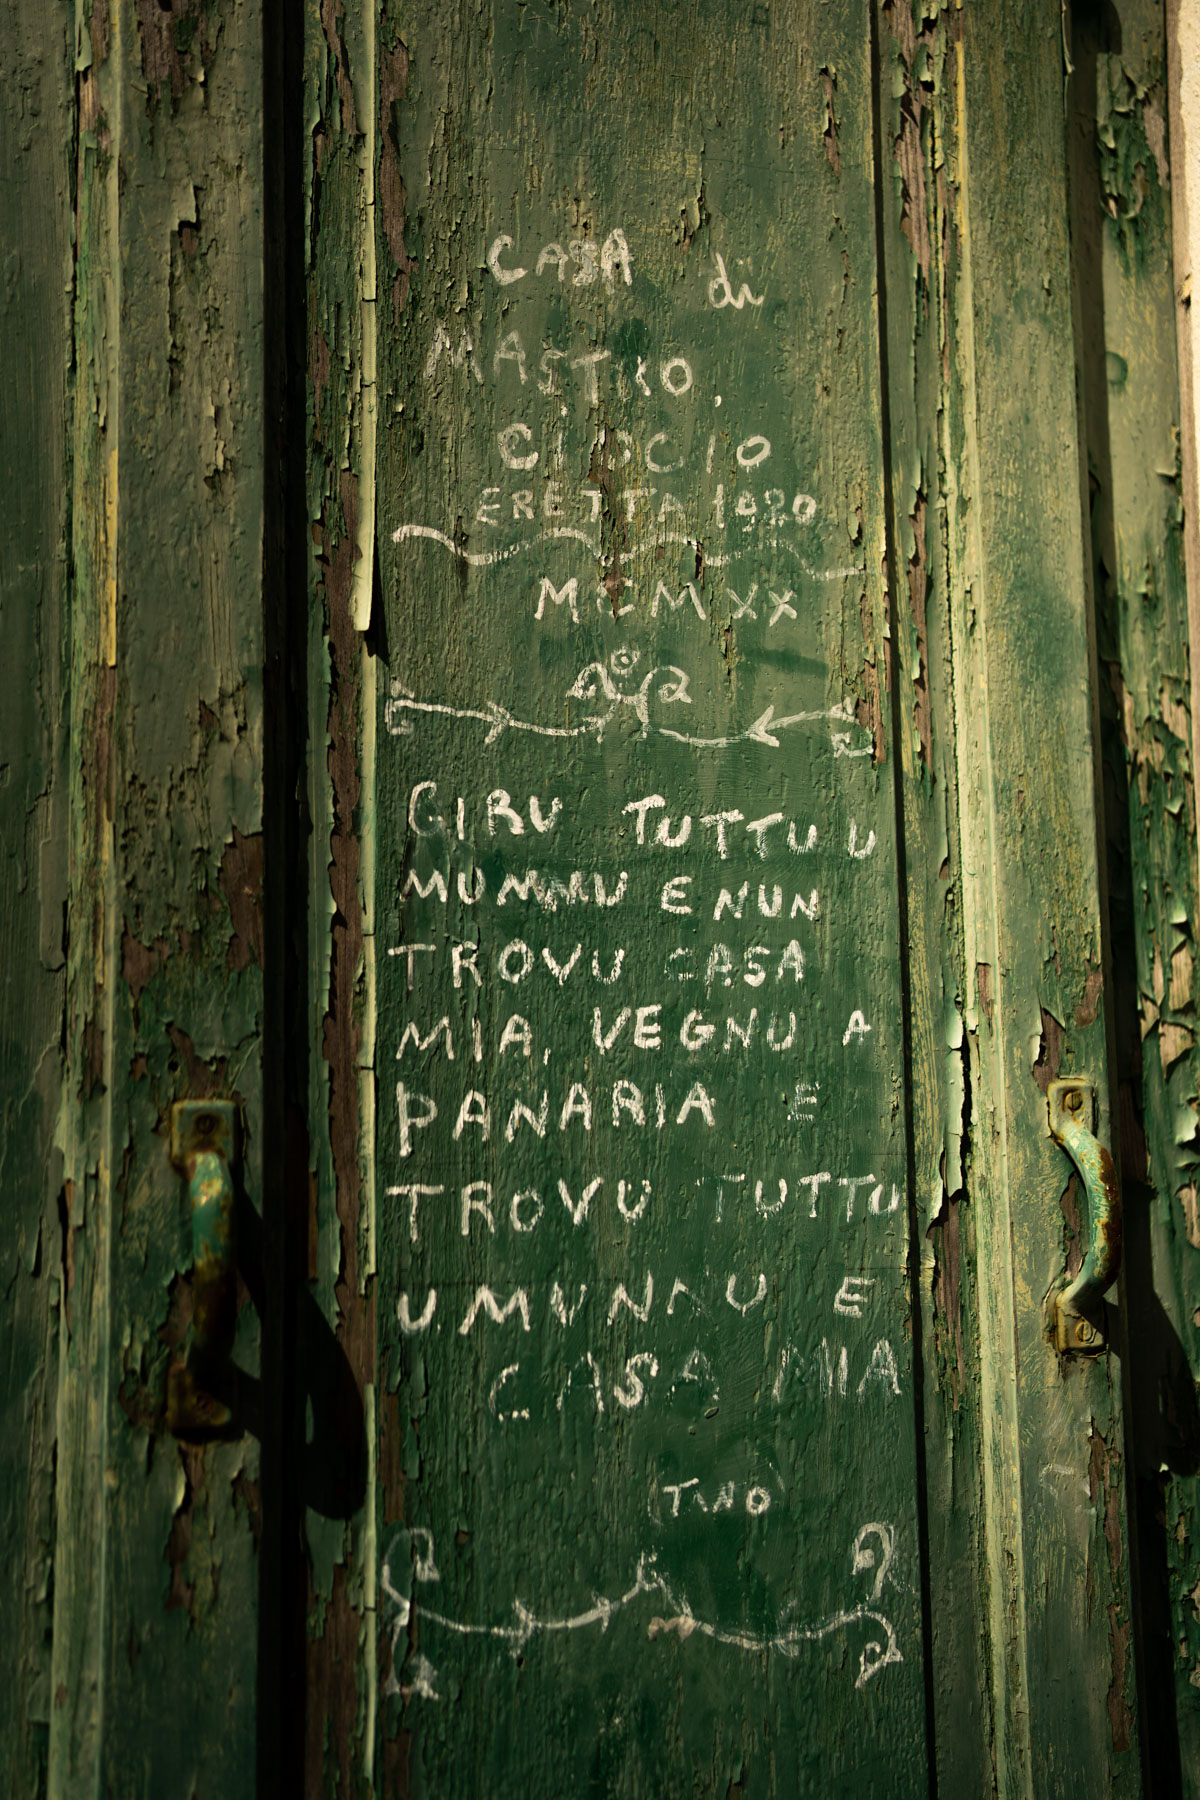 CASA di
MASTRO,
CIOCIO
ERETTA 1920
MCMXX
GIRU TUTTU U
MUNNU E NUN
TROVU CASA
MIA, VEGNU A
PANARIA E
TROVU TUTTU
U MUNNU E
CASA MIA
(TINO)